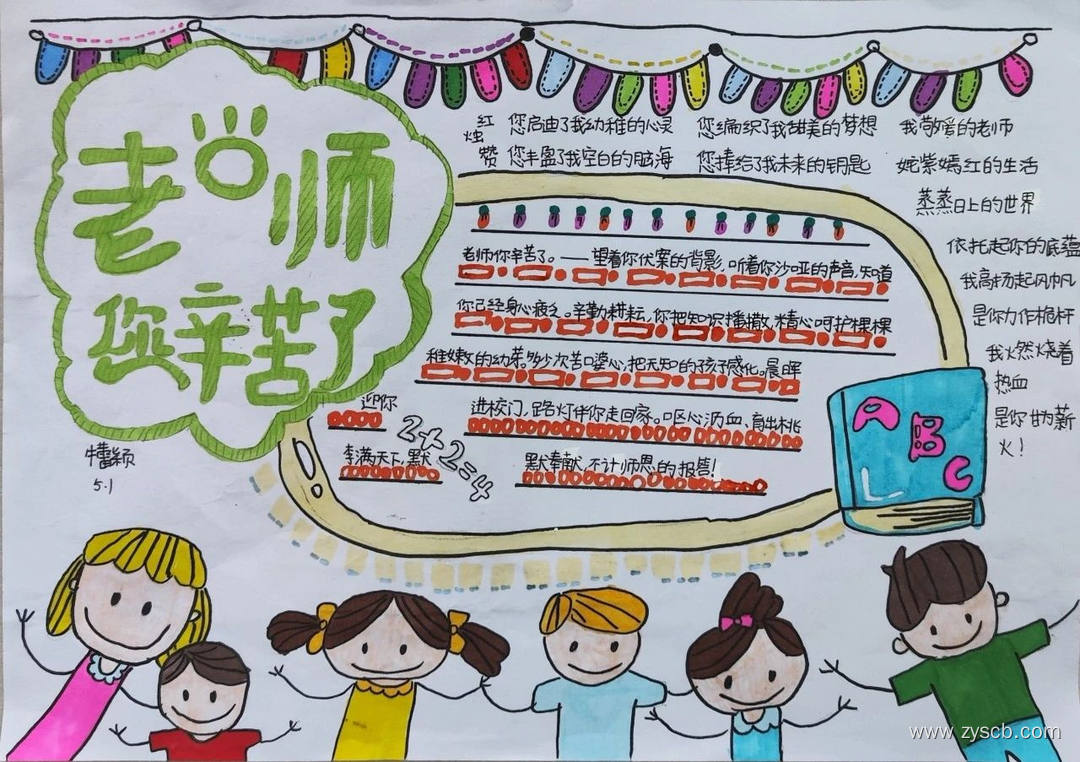 老师
您辛苦了
红烛赞
您启迪了我幼稚的心灵
您丰盈了我空白的脑海
您编织了我甜美的梦想
您捧给了我未来的钥匙
我敬爱的老师
姹紫嫣红的生活
蒸蒸日上的世界
依托起你的底蕴
我高扬起风帆
是你力作桅杆
我火燃烧着
热血
是你甘为薪
火！
老师你辛苦了。——望着你伏案的背影,听着你沙哑的声音,知道
你已经身心疲乏。辛勤耕耘,你把知识播撒,精心呵护棵棵
稚嫩的幼苗。多少次苦口婆心,把无知的孩子感化。晨晖
迎你 进校门,路灯伴你走回家。呕心沥血,育出桃
李满天下,默 默奉献,不计师恩的报答!
2+2=4
ABC
5.1
www.zyscb.com